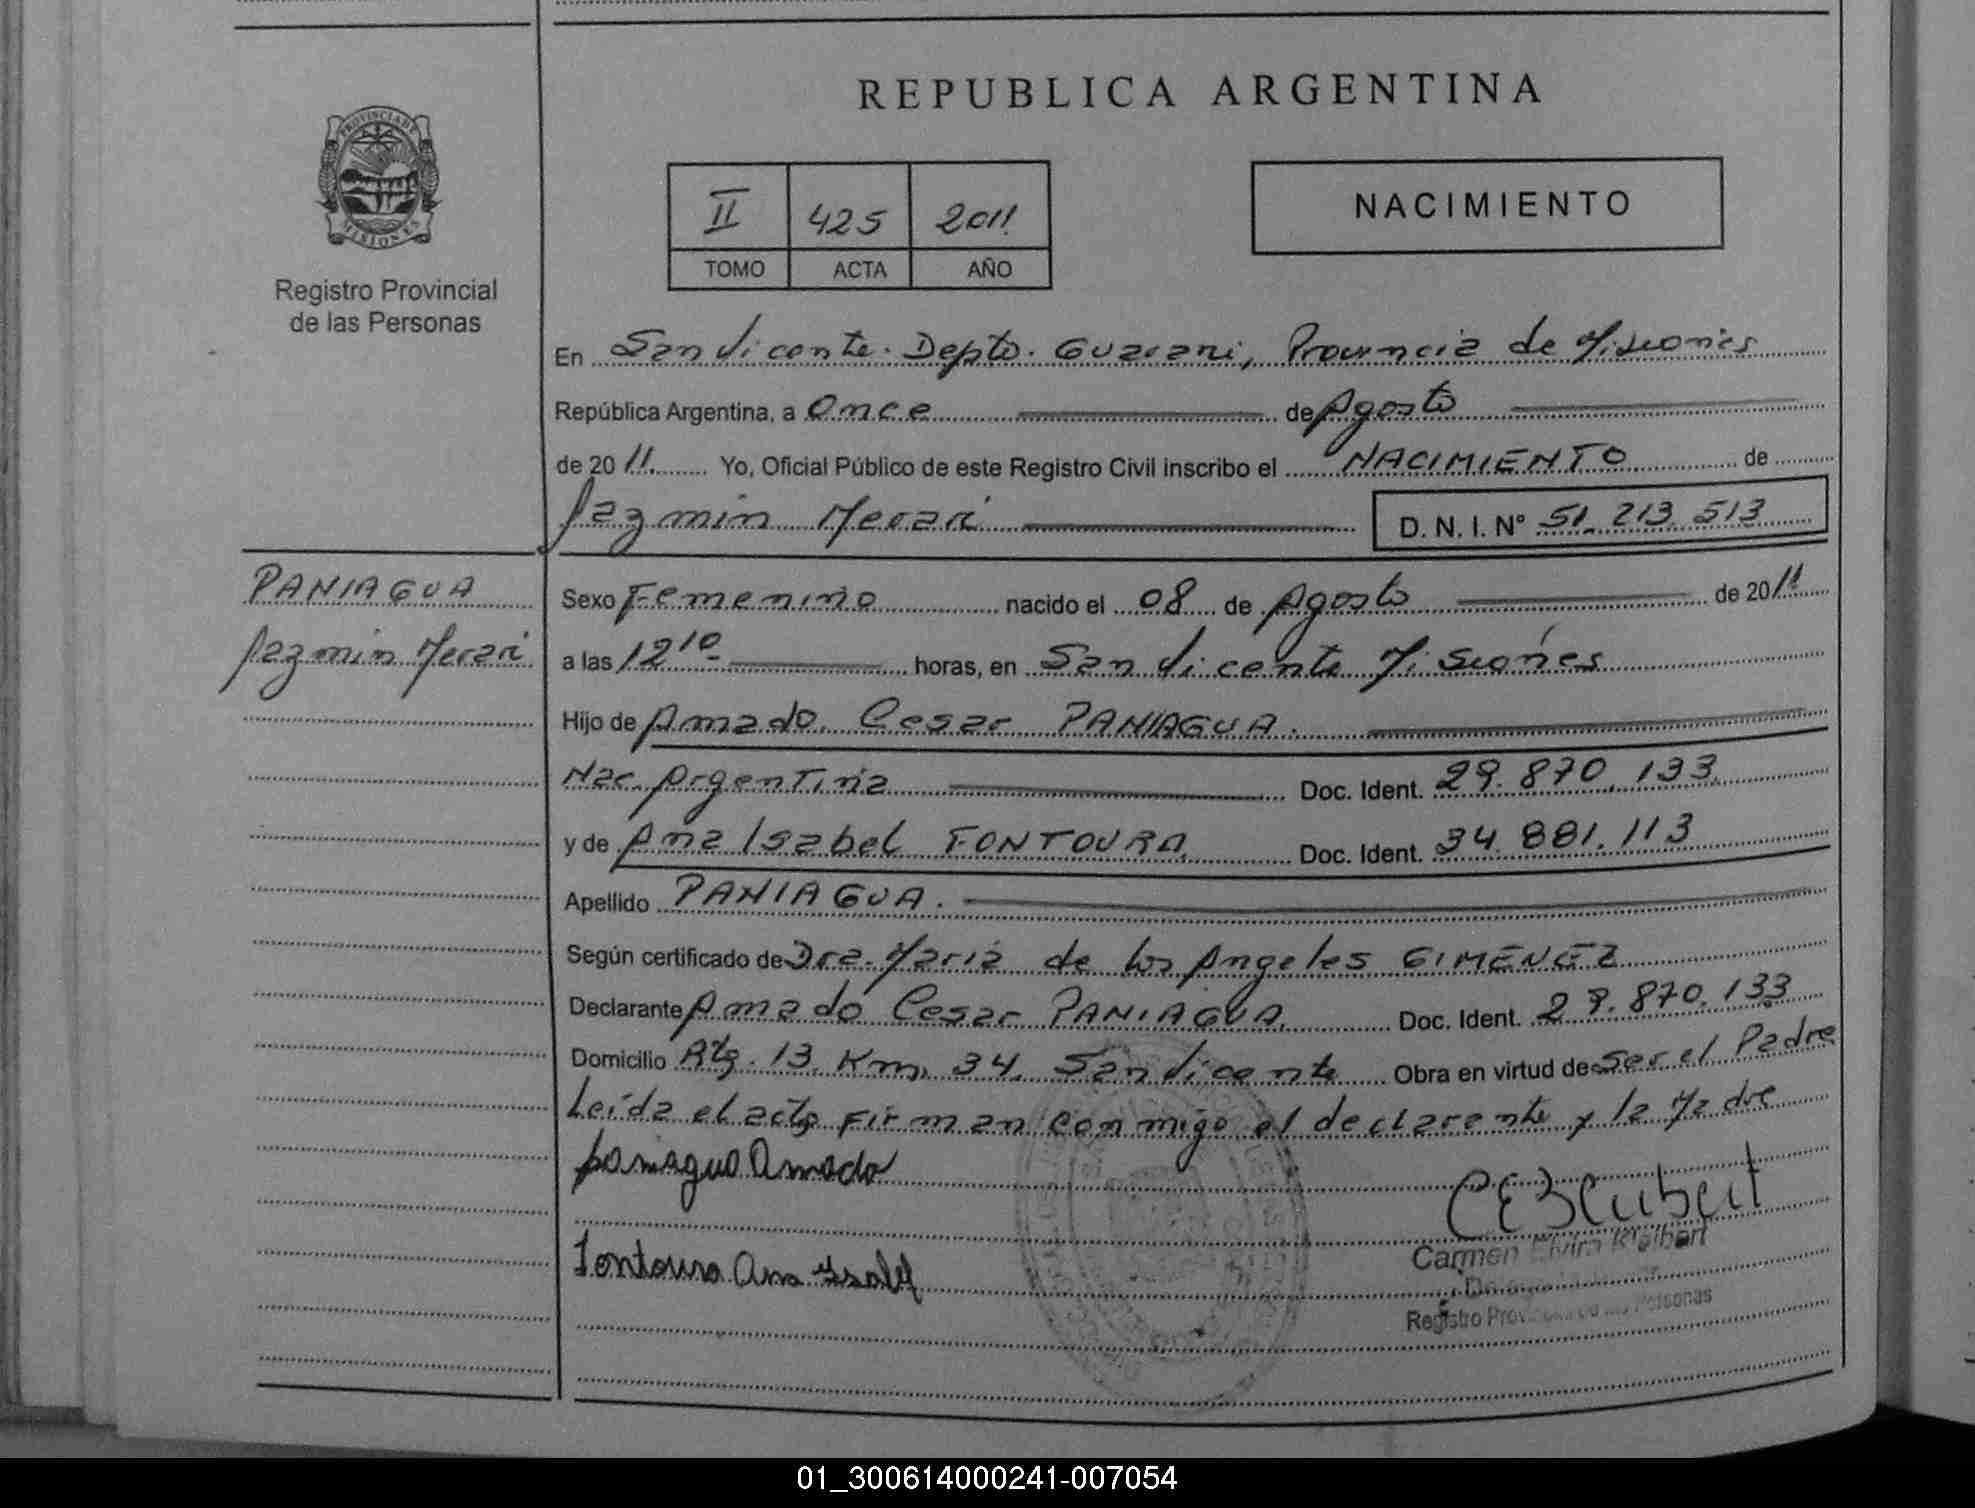 REPUBLICA ARGENTINA
PROVINCIA DE
MISIONES
Registro Provincial
de las Personas
II 425 2011
TOMO ACTA AÑO
NACIMIENTO
En San Vicente. Depto. Guarani, Provincia de Misiones
República Argentina, a Once de Agosto
de 20 11. Yo, Oficial Público de este Registro Civil inscribo el NACIMIENTO de
Jazmin Merari D. N. I. N° 51.213.513
PANIAGUA
Jazmin Merari
Sexo Femenino nacido el 08 de Agosto de 2011
a las 12 10 horas, en San Vicente Misiones
Hijo de Amado Cesar PANIAGUA.
Nac. Argentina Doc. Ident. 29.870.133
y de Ana Isabel FONTOURA Doc. Ident. 34.881.113
Apellido PANIAGUA.
Según certificado de Dra. Maria de los Angeles GIMENEZ
Declarante Amado Cesar PANIAGUA Doc. Ident. 29.870.133
Domicilio Rta. 13. Km. 34. San Vicente Obra en virtud de Ser el Padre
Leída el acta firman conmigo el declarante y la Madre
paniagua Amado
Fontoura Ana Ysabel
Carmen Elvira
Registro Personas
01_300614000241-007054